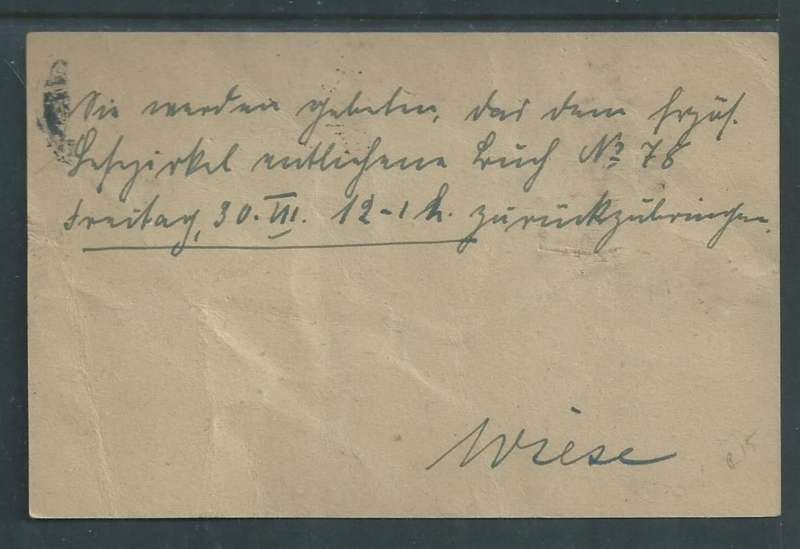 Sie werden gebeten, das dem
Lesezirkel entliehene Buch № 78
Freitag, 30. VII. 12-1 h. zurückzubringen.
Wiese